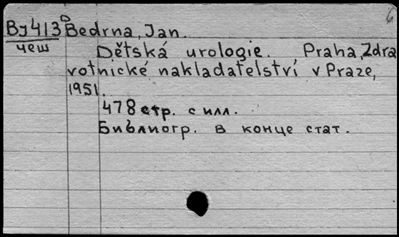 Ву413 Bedrna, Jan.
чеш Dětská urologie. Praha, Zdra
votnické nakladatelství v Praze,
1951.
478 стр. с илл.
Библиогр. в конце стат.